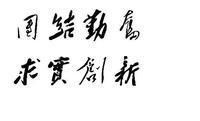 團結勤奮
求實創新